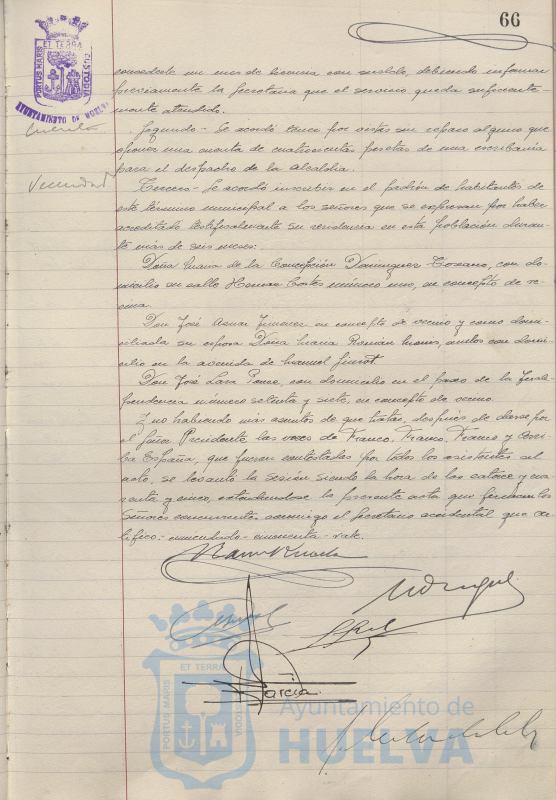 66
PORTUS MARIS ET TERRAE CUSTODIA
AYUNTAMIENTO DE HUELVA
concederle un mes de licencia con sueldo, debiendo informar
previamente la Secretaría que el servicio queda suficiente-
mente atendido.
Segundo - Se acordó por vistas sin reparo alguno que
oponer una cuenta de cuatrocientas pesetas de una escribanía
para el despacho de la alcaldía.
Vecindad
Tercero - Se acordó inscribir en el padrón de habitantes de
este término municipal a los señores que se expresan por haber
acreditado su residencia en esta población duran-
te más de seis meses:
Doña María de la Concepción Domínguez, con do-
micilio en calle Hernán Cortés número uno, en concepto de ve-
cina.
Don José Aznar Jimenez en concepto de vecino y como domi-
ciliada su esposa Doña María Román, ambos con domi-
cilio en la avenida de Manuel Siurot.
Don José Lara Ponce, con domicilio en el paseo de la Inde-
pendencia número setenta y siete, en concepto de vecino.
Y no habiendo más asuntos de que tratar, después de darse por
el Señor Presidente las voces de Franco, Franco, Franco y Arri-
ba España, que fueron contestadas por todos los asistentes al
acto, se levantó la sesión siendo la hora de las catorce y cua-
renta y cinco, extendiéndose la presente acta que firman los
Señores concurrentes conmigo el Secretario accidental que cer-
tifico = enmendado = vale.
García
PORTUS MARIS ET TERRAE CUSTODIA
Ayuntamiento de
HUELVA